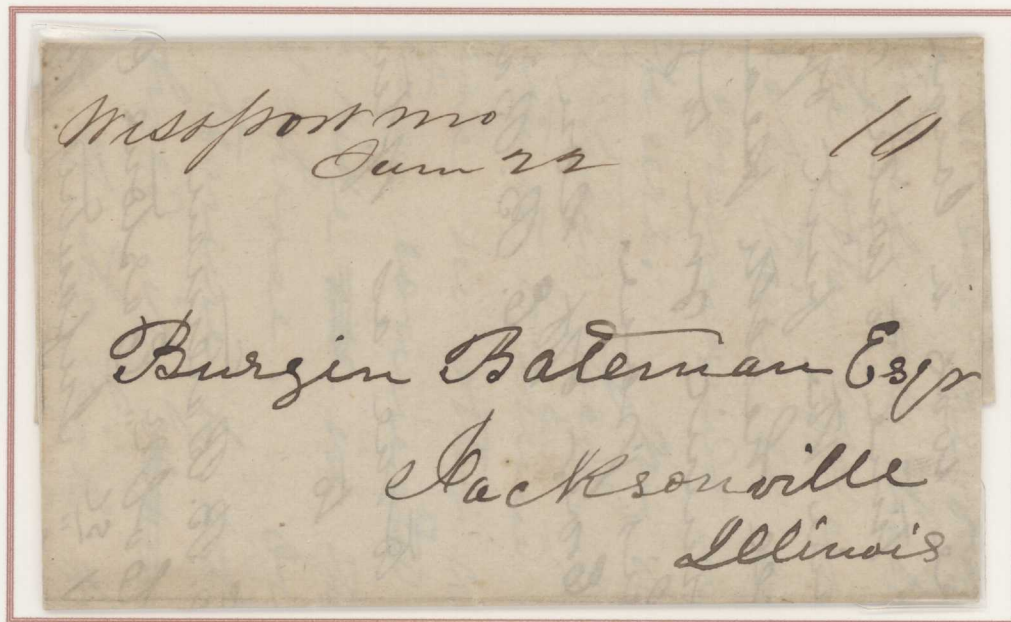 Westport Mo
10
June 22
Burgin Bateman Esqr
Jacksonville
Illinois